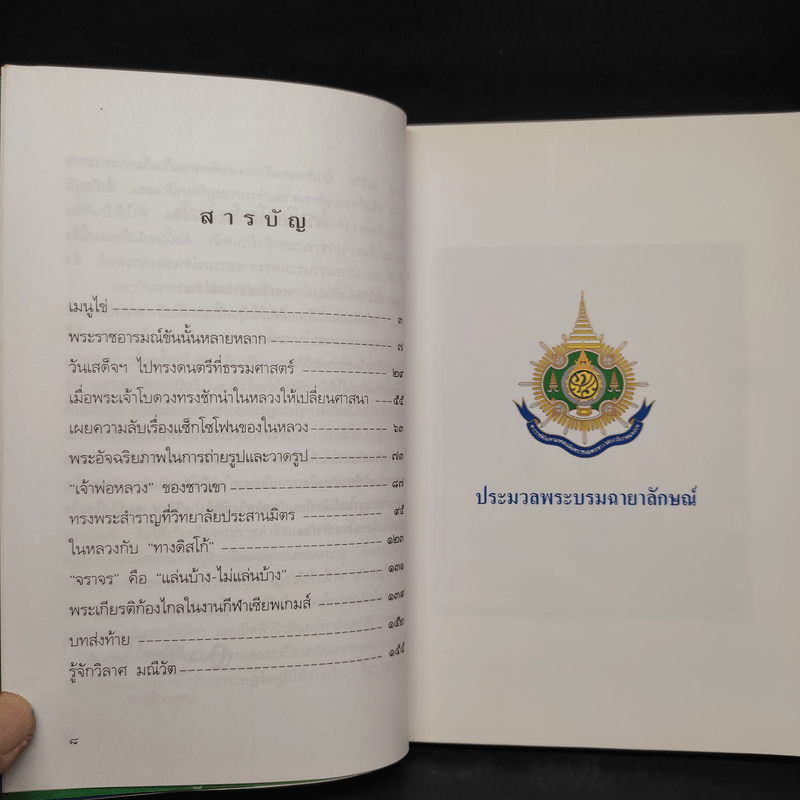 สารบัญ
เมนูไข่ ๓
พระราชอารมณ์ขันนั้นหลายหลาก ๗
วันเสด็จฯ ไปทรงดนตรีที่ธรรมศาสตร์ ๒๙
เมื่อพระเจ้าโบดวงทรงชักนำในหลวงให้เปลี่ยนศาสนา ๕๕
เผยความลับเรื่องแซ็กโซโฟนของในหลวง ๖๓
พระอัจฉริยภาพในการถ่ายรูปและวาดรูป ๗๓
“เจ้าพ่อหลวง” ของชาวเขา ๘๗
ทรงพระสำราญที่วิทยาลัยประสานมิตร ๙๕
ในหลวงกับ “ทางดิสโก้” ๑๒๓
“จราจร” คือ “แล่นบ้าง-ไม่แล่นบ้าง” ๑๓๑
พระเกียรติก้องไกลในงานกีฬาเซียพเกมส์ ๑๓๙
บทส่งท้าย ๑๕๒
รู้จักวิลาศ มณีวัต ๑๕๕
๘
ประมวลพระบรมฉายาลักษณ์